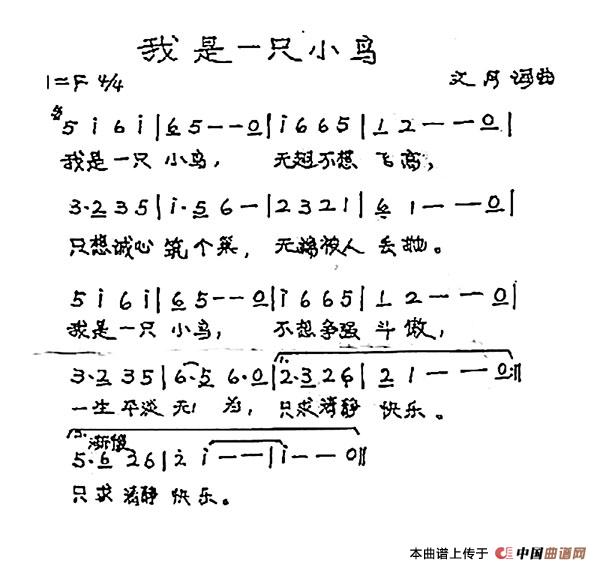 我是一只小鸟
1=F 4/4 文月 词曲
5 i 6 i | 6 5 - - 0 | i 6 6 5 | 1 2 - - 0 |
我是一只 小鸟， 无翅不想 飞高，
3·2 3 5 | i·5 6 - | 2 3 2 1 | 6 1 - - 0 |
只想诚心 筑个巢， 无端被人 丢抛。
5 i 6 i | 6 5 - - 0 | i 6 6 5 | 1 2 - - 0 |
我是一只 小鸟， 不想争强 斗傲，
1.
3·2 3 5 | 6·5 6·0 | 2·3 2 6 | 2 1 - - 0 :||
一生平淡 无 为， 只求清静 快乐。
2. 渐慢
5·6 2 6 | 2 i - - | i - - 0 ||
只求清静 快乐。
本曲谱上传于 中国曲谱网